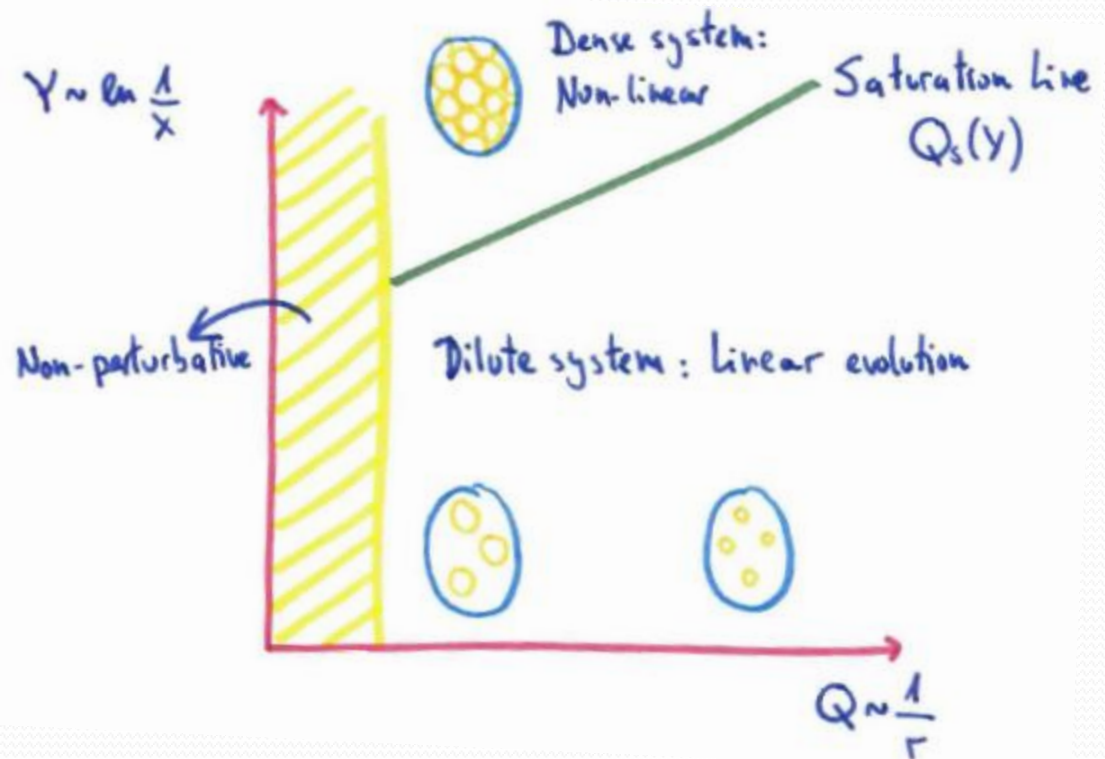 Dense system:
Non-linear
Y ~ ln 1/x
Saturation Line
Qs(Y)
Non-perturbative
Dilute system: Linear evolution
Q ~ 1/r